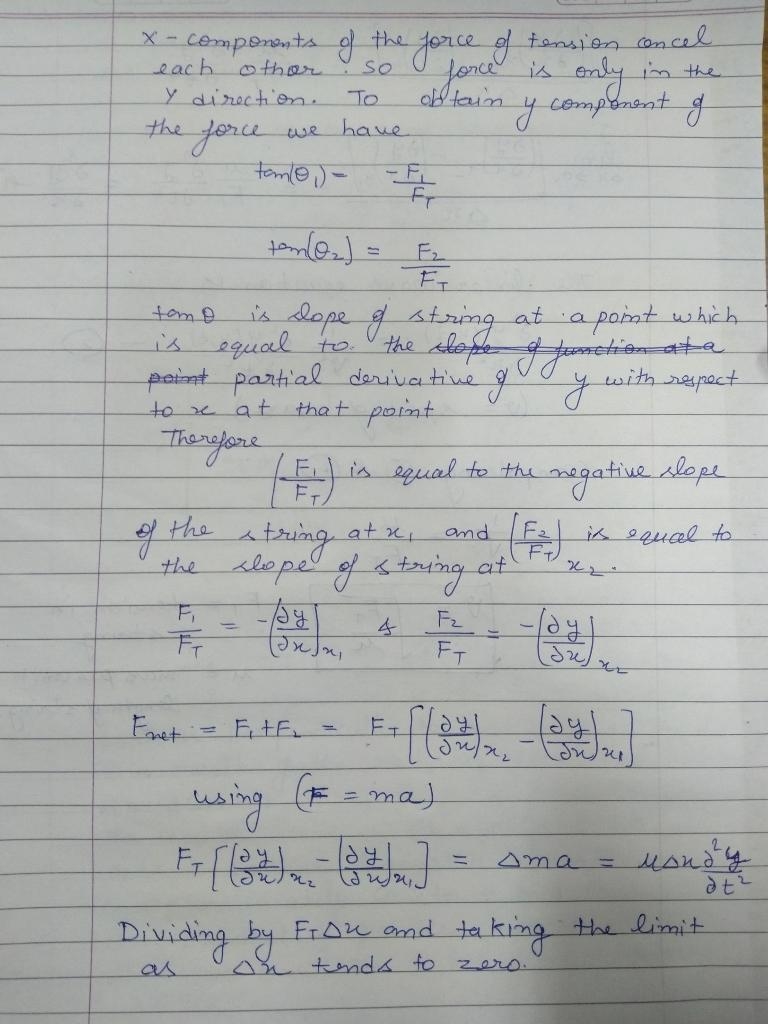 x - components of the force of tension cancel
each other. so force is only in the
Y direction. To obtain y component of
the force we have
tan(θ₁) = -F₁/F_T
tan(θ₂) = F₂/F_T
tan θ is slope of string at a point which
is equal to the slope of function at a
point partial derivative of y with respect
to x at that point
Therefore
(F₁/F_T) is equal to the negative slope
of the string at x₁ and (F₂/F_T) is equal to
the slope of string at x₂.
F₁/F_T = -(∂y/∂x)x₁ & F₂/F_T = -(∂y/∂x)x₂
Fnet = F₁ + F₂ = F_T [(∂y/∂x)x₂ - (∂y/∂x)x₁]
using (F = ma)
F_T [(∂y/∂x)x₂ - (∂y/∂x)x₁] = Δma = μΔx ∂²y/∂t²
Dividing by F_TΔx and taking the limit
as Δx tends to zero.